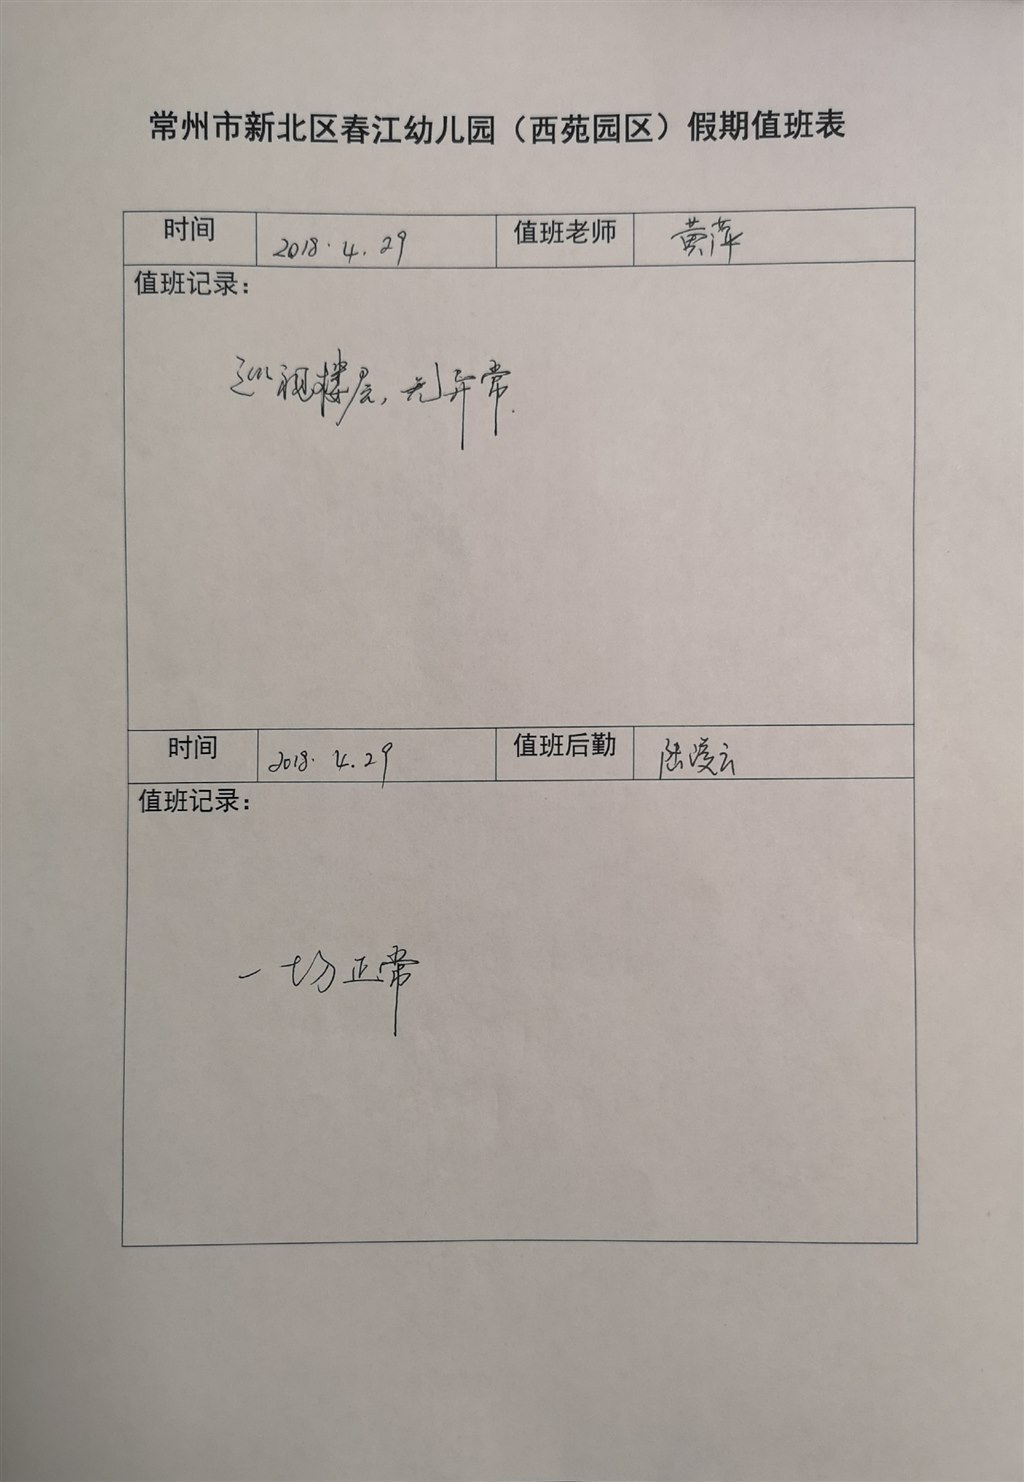 常州市新北区春江幼儿园（西苑园区）假期值班表
时间 2018.4.29 值班老师 黄萍
值班记录：
巡视楼层，无异常.
时间 2018.4.29 值班后勤 陆凌云
值班记录：
一切正常